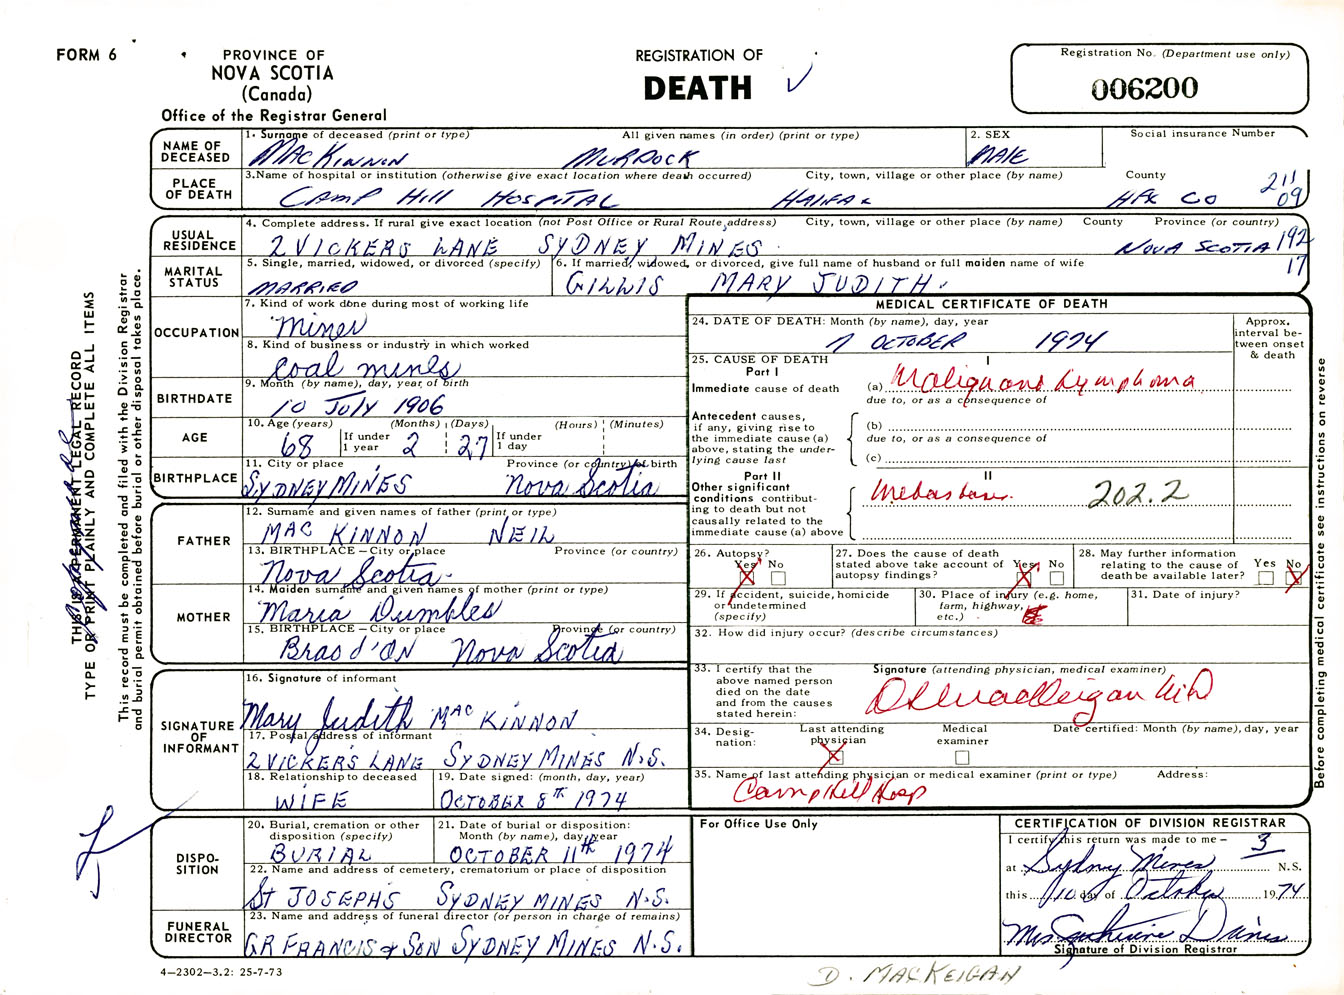 FORM 6
PROVINCE OF
NOVA SCOTIA
(Canada)
Office of the Registrar General
REGISTRATION OF
DEATH
Registration No. (Department use only)
006200
THIS IS A PERMANENT LEGAL RECORD
TYPE OR PRINT PLAINLY AND COMPLETE ALL ITEMS
This record must be completed and filed with the Division Registrar
and burial permit obtained before burial or other disposal takes place.
NAME OF
DECEASED
1. Surname of deceased (print or type) All given names (in order) (print or type)
MACKINNON MURDOCK
2. SEX
MALE
Social insurance Number
PLACE
OF DEATH
3. Name of hospital or institution (otherwise give exact location where death occurred) City, town, village or other place (by name) County
CAMP HILL HOSPITAL HALIFAX HFX CO
211
09
USUAL
RESIDENCE
4. Complete address. If rural give exact location (not Post Office or Rural Route address) City, town, village or other place (by name) County Province (or country)
2 VICKERS LANE SYDNEY MINES NOVA SCOTIA 192
17
MARITAL
STATUS
5. Single, married, widowed, or divorced (specify)
MARRIED
6. If married, widowed, or divorced, give full name of husband or full maiden name of wife
GILLIS MARY JUDITH.
OCCUPATION
7. Kind of work done during most of working life
Miner
8. Kind of business or industry in which worked
Coal mines
BIRTHDATE
9. Month (by name), day, year, of birth
10 JULY 1906
AGE
10. Age (years) If under 1 year (Months) (Days) If under 1 day (Hours) (Minutes)
68 2 27
BIRTHPLACE
11. City or place Province (or country) of birth
SYDNEY MINES NOVA SCOTIA
FATHER
12. Surname and given names of father (print or type)
MAC KINNON NEIL
13. BIRTHPLACE – City or place Province (or country)
Nova Scotia
MOTHER
14. Maiden surname and given names of mother (print or type)
Maria Dumbles
15. BIRTHPLACE – City or place Province (or country)
Bras d'Or Nova Scotia
SIGNATURE
OF
INFORMANT
16. Signature of informant
Mary Judith MAC KINNON
17. Postal address of informant
2 VICKERS LANE SYDNEY MINES N.S.
18. Relationship to deceased
WIFE
19. Date signed: (month, day, year)
OCTOBER 8TH 1974
DISPO-
SITION
20. Burial, cremation or other
disposition (specify)
BURIAL
21. Date of burial or disposition:
Month (by name), day, year
OCTOBER 11th 1974
22. Name and address of cemetery, crematorium or place of disposition
St JOSEPH'S SYDNEY MINES N.S.
FUNERAL
DIRECTOR
23. Name and address of funeral director (or person in charge of remains)
G.R FRANCIS & SON SYDNEY MINES N.S.
4–2302–3.2: 25-7-73
MEDICAL CERTIFICATE OF DEATH
24. DATE OF DEATH: Month (by name), day, year
7 OCTOBER 1974
Approx.
interval be-
tween onset
& death
25. CAUSE OF DEATH
Part I
I
Immediate cause of death
(a) Malignant Lymphoma
due to, or as a consequence of
Antecedent causes,
if any, giving rise to
the immediate cause (a)
above, stating the under-
lying cause last
(b)
due to, or as a consequence of
(c)
Part II
II
Other significant
conditions contribut-
ing to death but not
causally related to the
immediate cause (a) above
202.2
26. Autopsy?
Yes No
27. Does the cause of death
stated above take account of
autopsy findings?
Yes No
28. May further information
relating to the cause of
death be available later?
Yes No
29. If accident, suicide, homicide
or undetermined
(specify)
30. Place of injury (e.g. home,
farm, highway,
etc.)
31. Date of injury?
32. How did injury occur? (describe circumstances)
33. I certify that the
above named person
died on the date
and from the causes
stated herein:
Signature (attending physician, medical examiner)
34. Desig-
nation:
Last attending
physician
Medical
examiner
Date certified: Month (by name), day, year
35. Name of last attending physician or medical examiner (print or type) Address:
Camp Hill Hosp
Before completing medical certificate see instructions on reverse
For Office Use Only
CERTIFICATION OF DIVISION REGISTRAR
I certify this return was made to me – 3
at Sydney Mines N.S.
this 10 day of October 1974
Signature of Division Registrar
D. MACKEIGAN